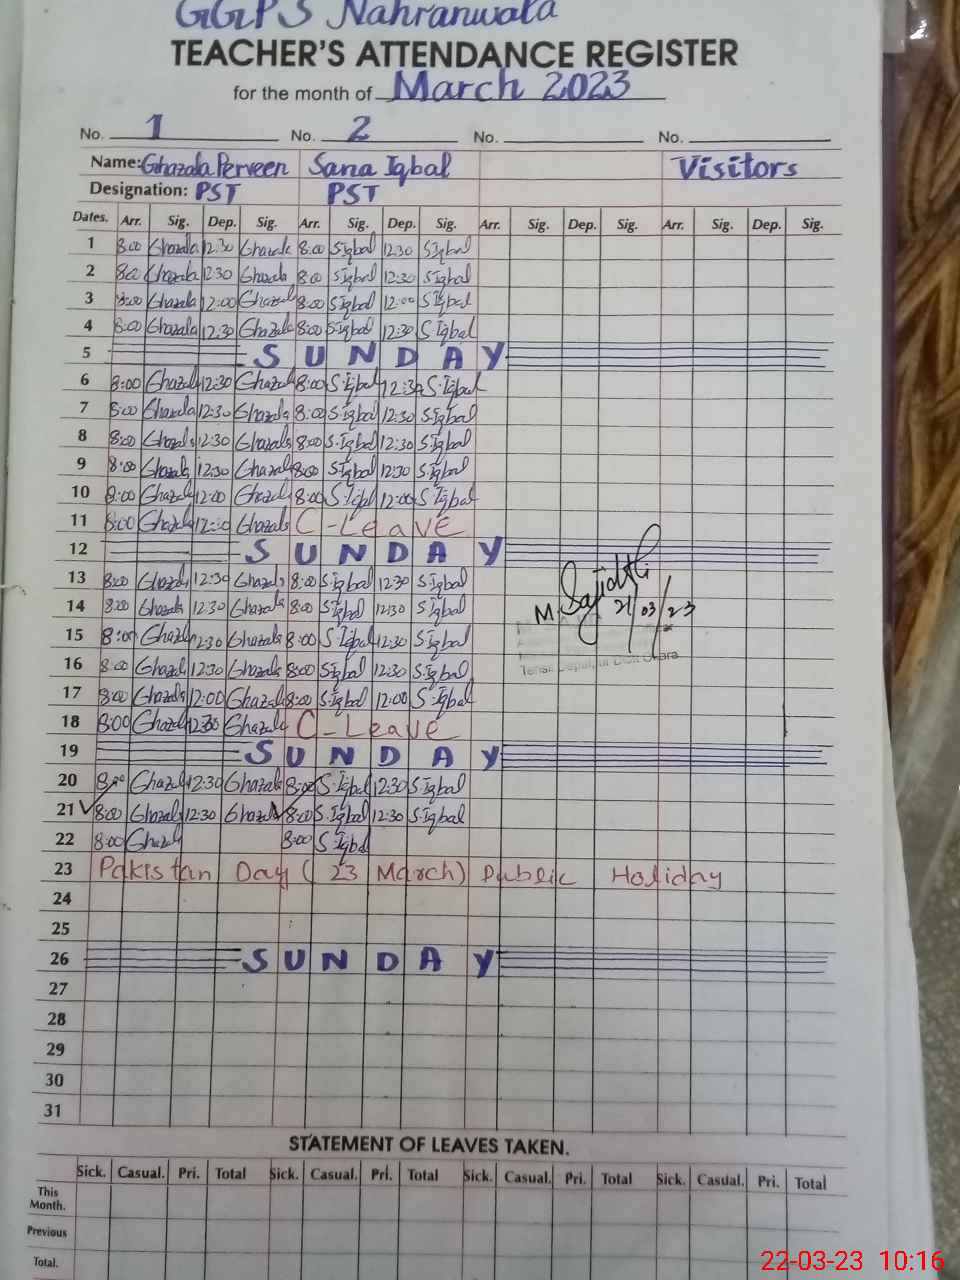 GGPS Nahranwala
TEACHER'S ATTENDANCE REGISTER
for the month of March 2023
No. 1 No. 2 No. No.
Name: Ghazala Perveen Sana Iqbal Visitors
Designation: PST PST
Dates. Arr. Sig. Dep. Sig. Arr. Sig. Dep. Sig. Arr. Sig. Dep. Sig. Arr. Sig. Dep. Sig.
1 8:00 Ghazala 12:30 Ghazala 8:00 S.Iqbal 12:30 S.Iqbal
2 8:00 Ghazala 12:30 Ghazala 8:00 S.Iqbal 12:30 S.Iqbal
3 8:00 Ghazala 12:00 Ghazala 8:00 S.Iqbal 12:00 S.Iqbal
4 8:00 Ghazala 12:30 Ghazala 8:00 S.Iqbal 12:30 S.Iqbal
5 SUNDAY
6 8:00 Ghazala 12:30 Ghazala 8:00 S.Iqbal 12:30 S.Iqbal
7 8:00 Ghazala 12:30 Ghazala 8:00 S.Iqbal 12:30 S.Iqbal
8 8:00 Ghazala 12:30 Ghazala 8:00 S.Iqbal 12:30 S.Iqbal
9 8:00 Ghazala 12:30 Ghazala 8:00 S.Iqbal 12:30 S.Iqbal
10 8:00 Ghazala 12:00 Ghazala 8:00 S.Iqbal 12:00 S.Iqbal
11 8:00 Ghazala 12:30 Ghazala C-Leave
12 SUNDAY
13 8:00 Ghazala 12:30 Ghazala 8:00 S.Iqbal 12:30 S.Iqbal
14 8:00 Ghazala 12:30 Ghazala 8:00 S.Iqbal 12:30 S.Iqbal
M. Sajid Ali 21/03/23
15 8:00 Ghazala 12:30 Ghazala 8:00 S.Iqbal 12:30 S.Iqbal
16 8:00 Ghazala 12:30 Ghazala 8:00 S.Iqbal 12:30 S.Iqbal
Tehsil Depalpur Distt Okara
17 8:00 Ghazala 12:00 Ghazala 8:00 S.Iqbal 12:00 S.Iqbal
18 8:00 Ghazala 12:30 Ghazala C-Leave
19 SUNDAY
20 8:00 Ghazala 12:30 Ghazala 8:00 S.Iqbal 12:30 S.Iqbal
21 8:00 Ghazala 12:30 Ghazala 8:00 S.Iqbal 12:30 S.Iqbal
22 8:00 Ghazala 8:00 S.Iqbal
23 Pakistan Day (23 March) Public Holiday
24
25
26 SUNDAY
27
28
29
30
31
STATEMENT OF LEAVES TAKEN.
Sick. Casual. Pri. Total Sick. Casual. Pri. Total Sick. Casual. Pri. Total Sick. Casual. Pri. Total
This
Month.
Previous
Total.
22-03-23 10:16